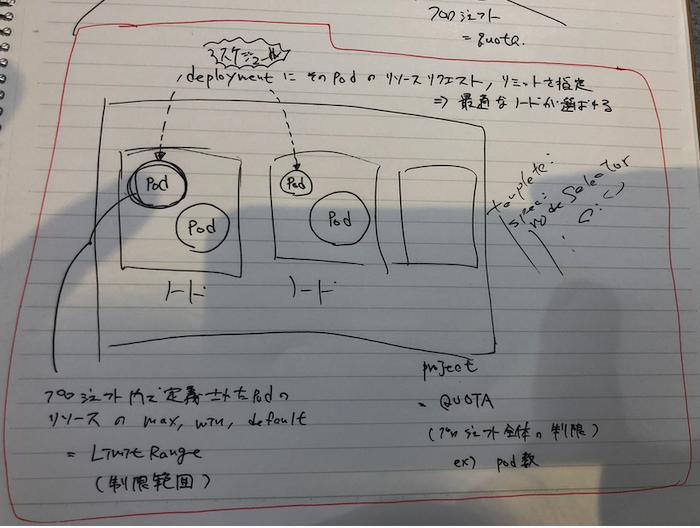 プロジェクト
= quota.
スケジュール
deployment に そのPod の リソースリクエスト, リミットを指定
⇒ 最適な ノードが選ばれる
Pod
Pod
Pod
Pod
ノード
ノード
template:
spec:
nodeSelector
project
プロジェクト内で定義されたPodの
リソースの max, min, default
= Limit Range
(制限範囲)
= QUOTA
(プロジェクト全体の制限)
ex) pod数